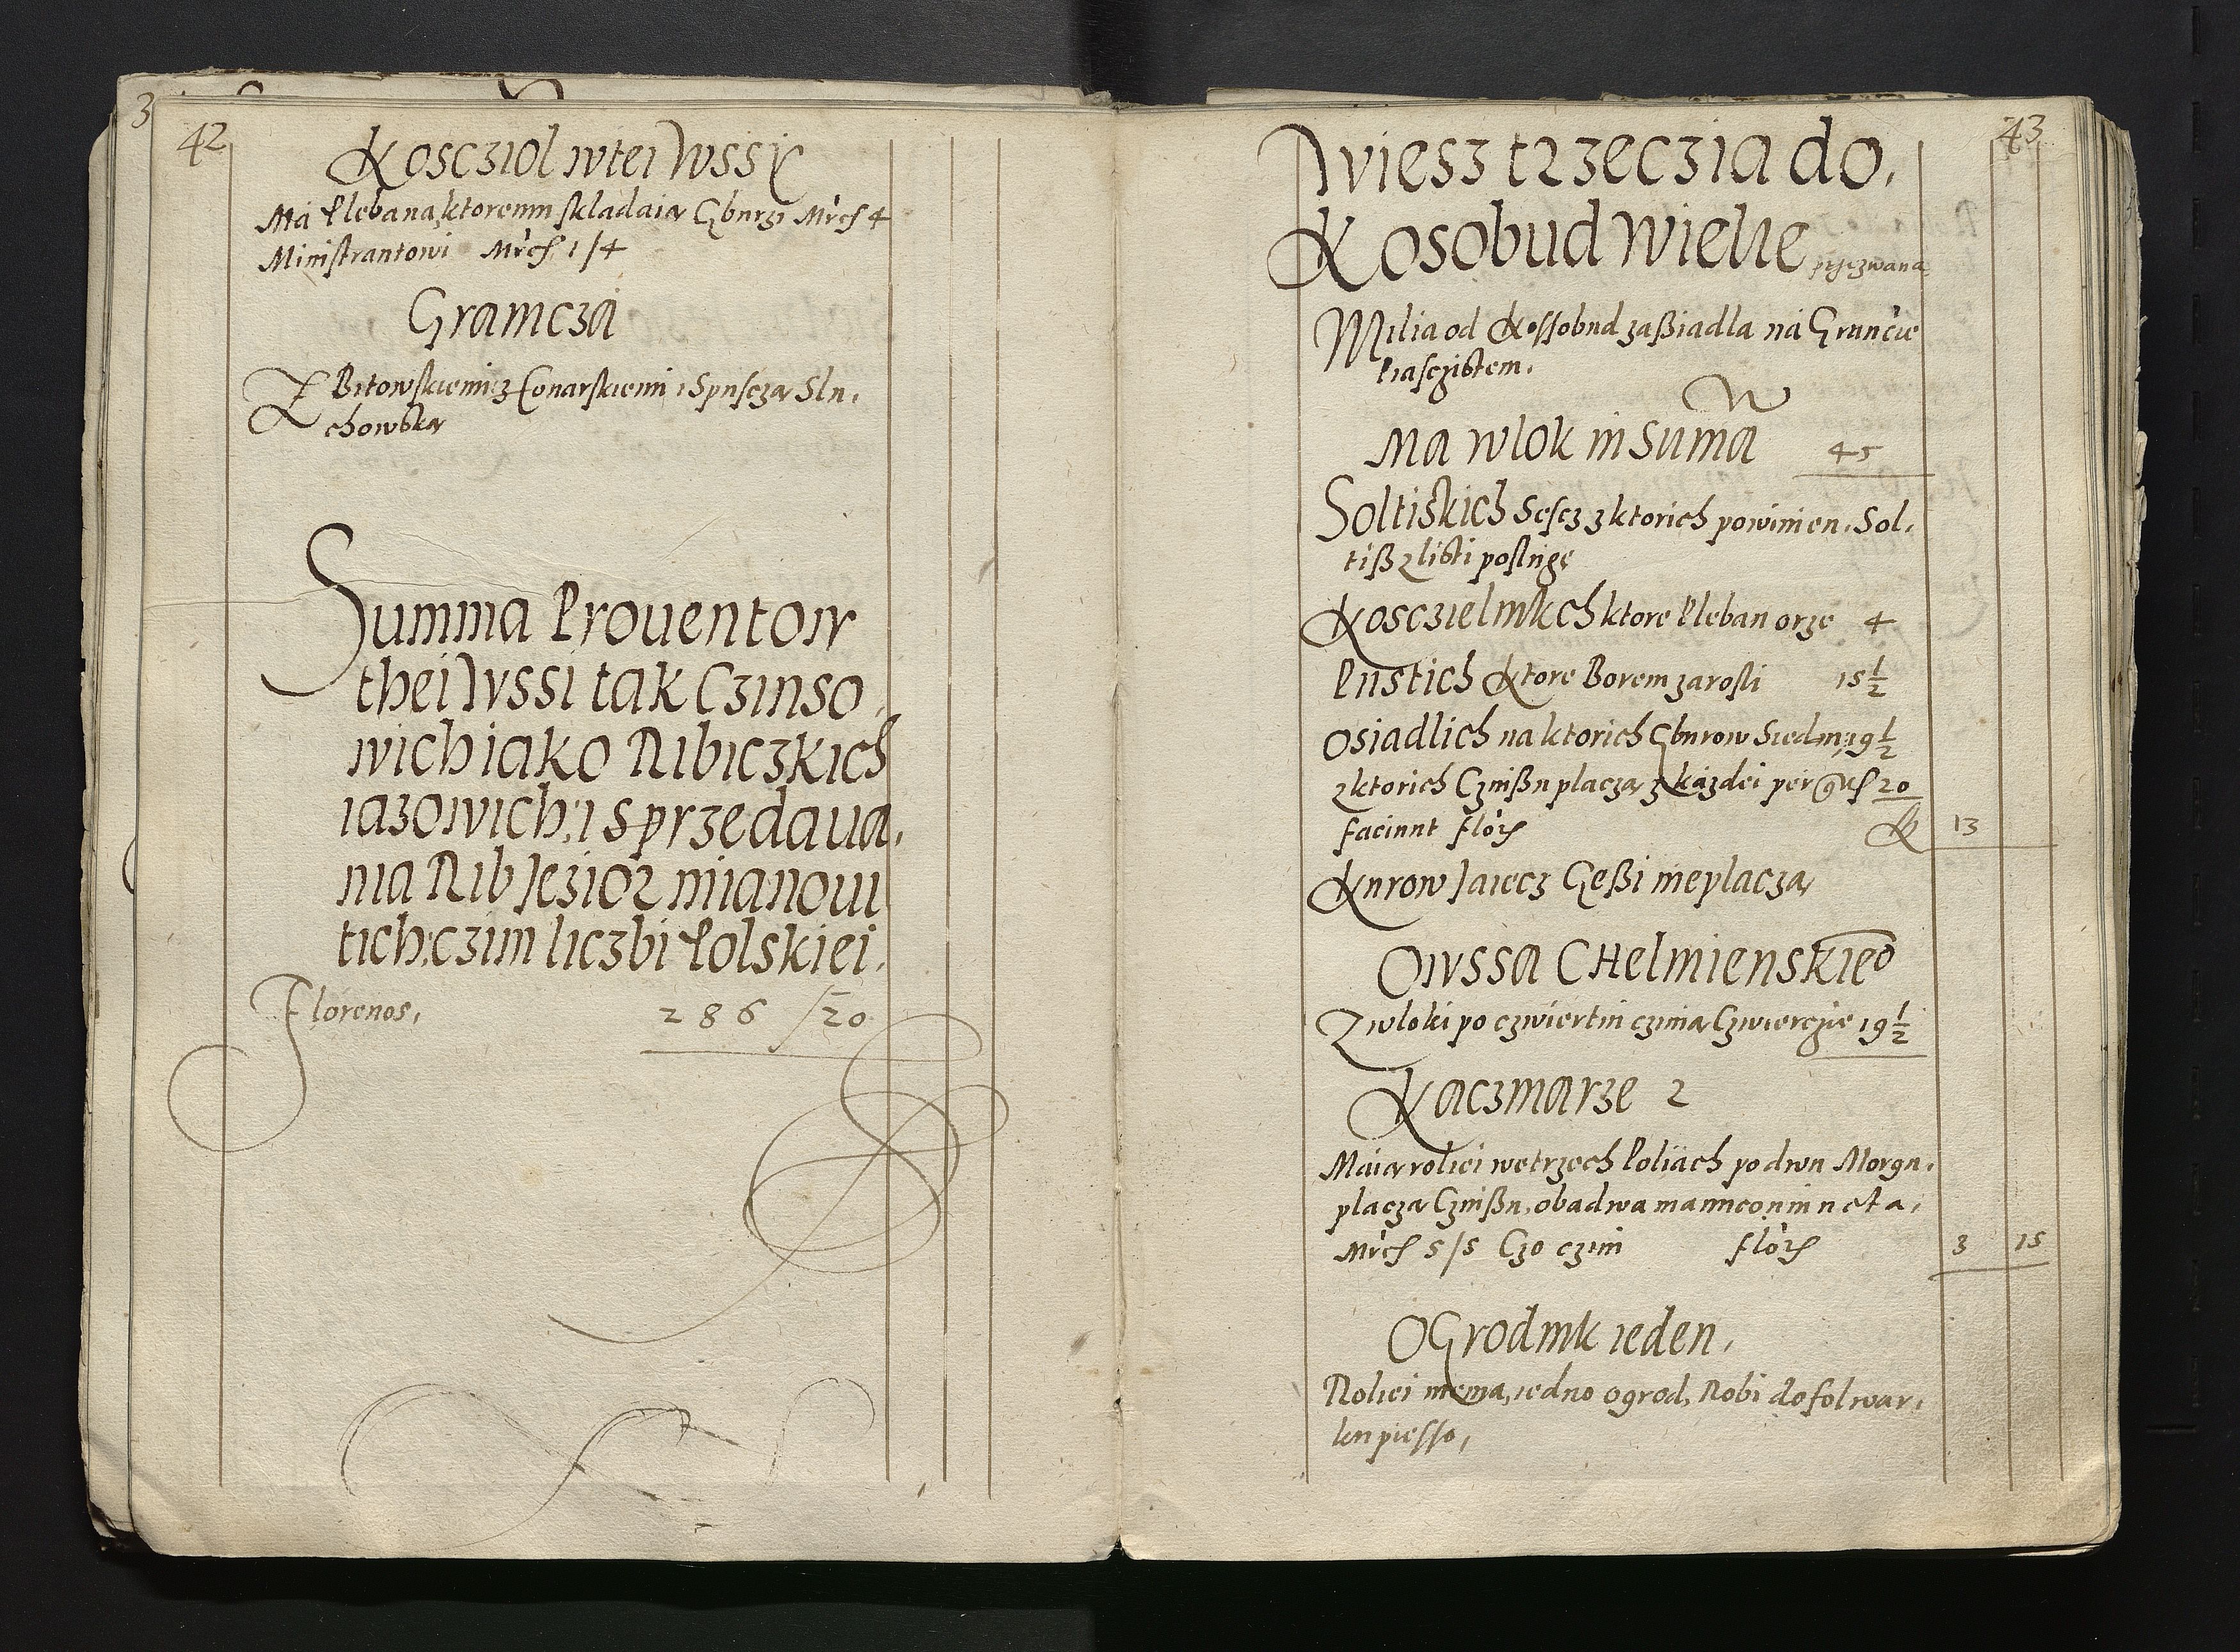 3
42
Kosczıol wtei Wssÿ
Má Plebana, ktoremu skladaią Gburzi Mrcſ 4
Ministrantowi Mrcſ 1/4
Gramczá
Z Bitowskiemi, z Conarskiemi i Spusczą Slu,
chowską
Summa Prouentow
thei Wssi tak Czinso,
wich iako Ribiczkich
iazowich, i sprzedaua,
nia Rib Jezior mianoui
tich, czini liczbi Polskiei,
Florenos, 286 /20
43
Wiesz trzeczia do,
Kosobud Wielie przezwana
Milia od Kossobud zaßiadla ná Gruncie
Piasczistem,
Ma wlok in Suma 45
Soltiskich Sescz z ktorich powinien, Sol,
tiß z listi poslugę
Kosczielnikch ktore Pleban orze 4
Pustich Ktore Borem zarosli 15 1/2
Osiadlich na ktorich Gburow Siedm, 19 1/2
z ktorich Czinßu placzą z káżdei per gᵣſ 20
faciunt florſ 13
Kurow Jaiecz Gęßi nie placzą
Owssa CHelmienskieº
Z wloki po czwiertni czinia Czwierczie 19 1/2
Kaczmarze 2
Máią roliei wetrzech Poliach po dwu Morgu,
placzą Czinßu, obadwa
Mrcſ 5/5 Czo czini florſ 3 15
OGrodnik ieden,
Roliei niema, iedno ogrod, Robi do folwar,
ku piesso,